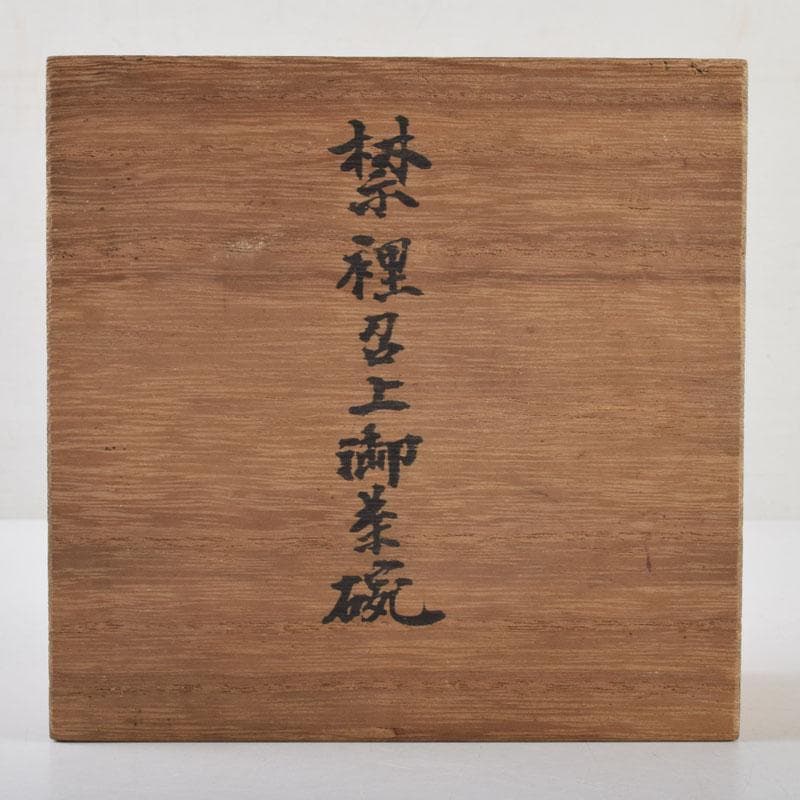 禁裡召上御茶碗